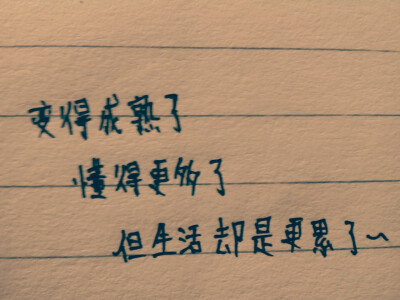 变得成熟了
懂得更多了
但生活却是更累了~